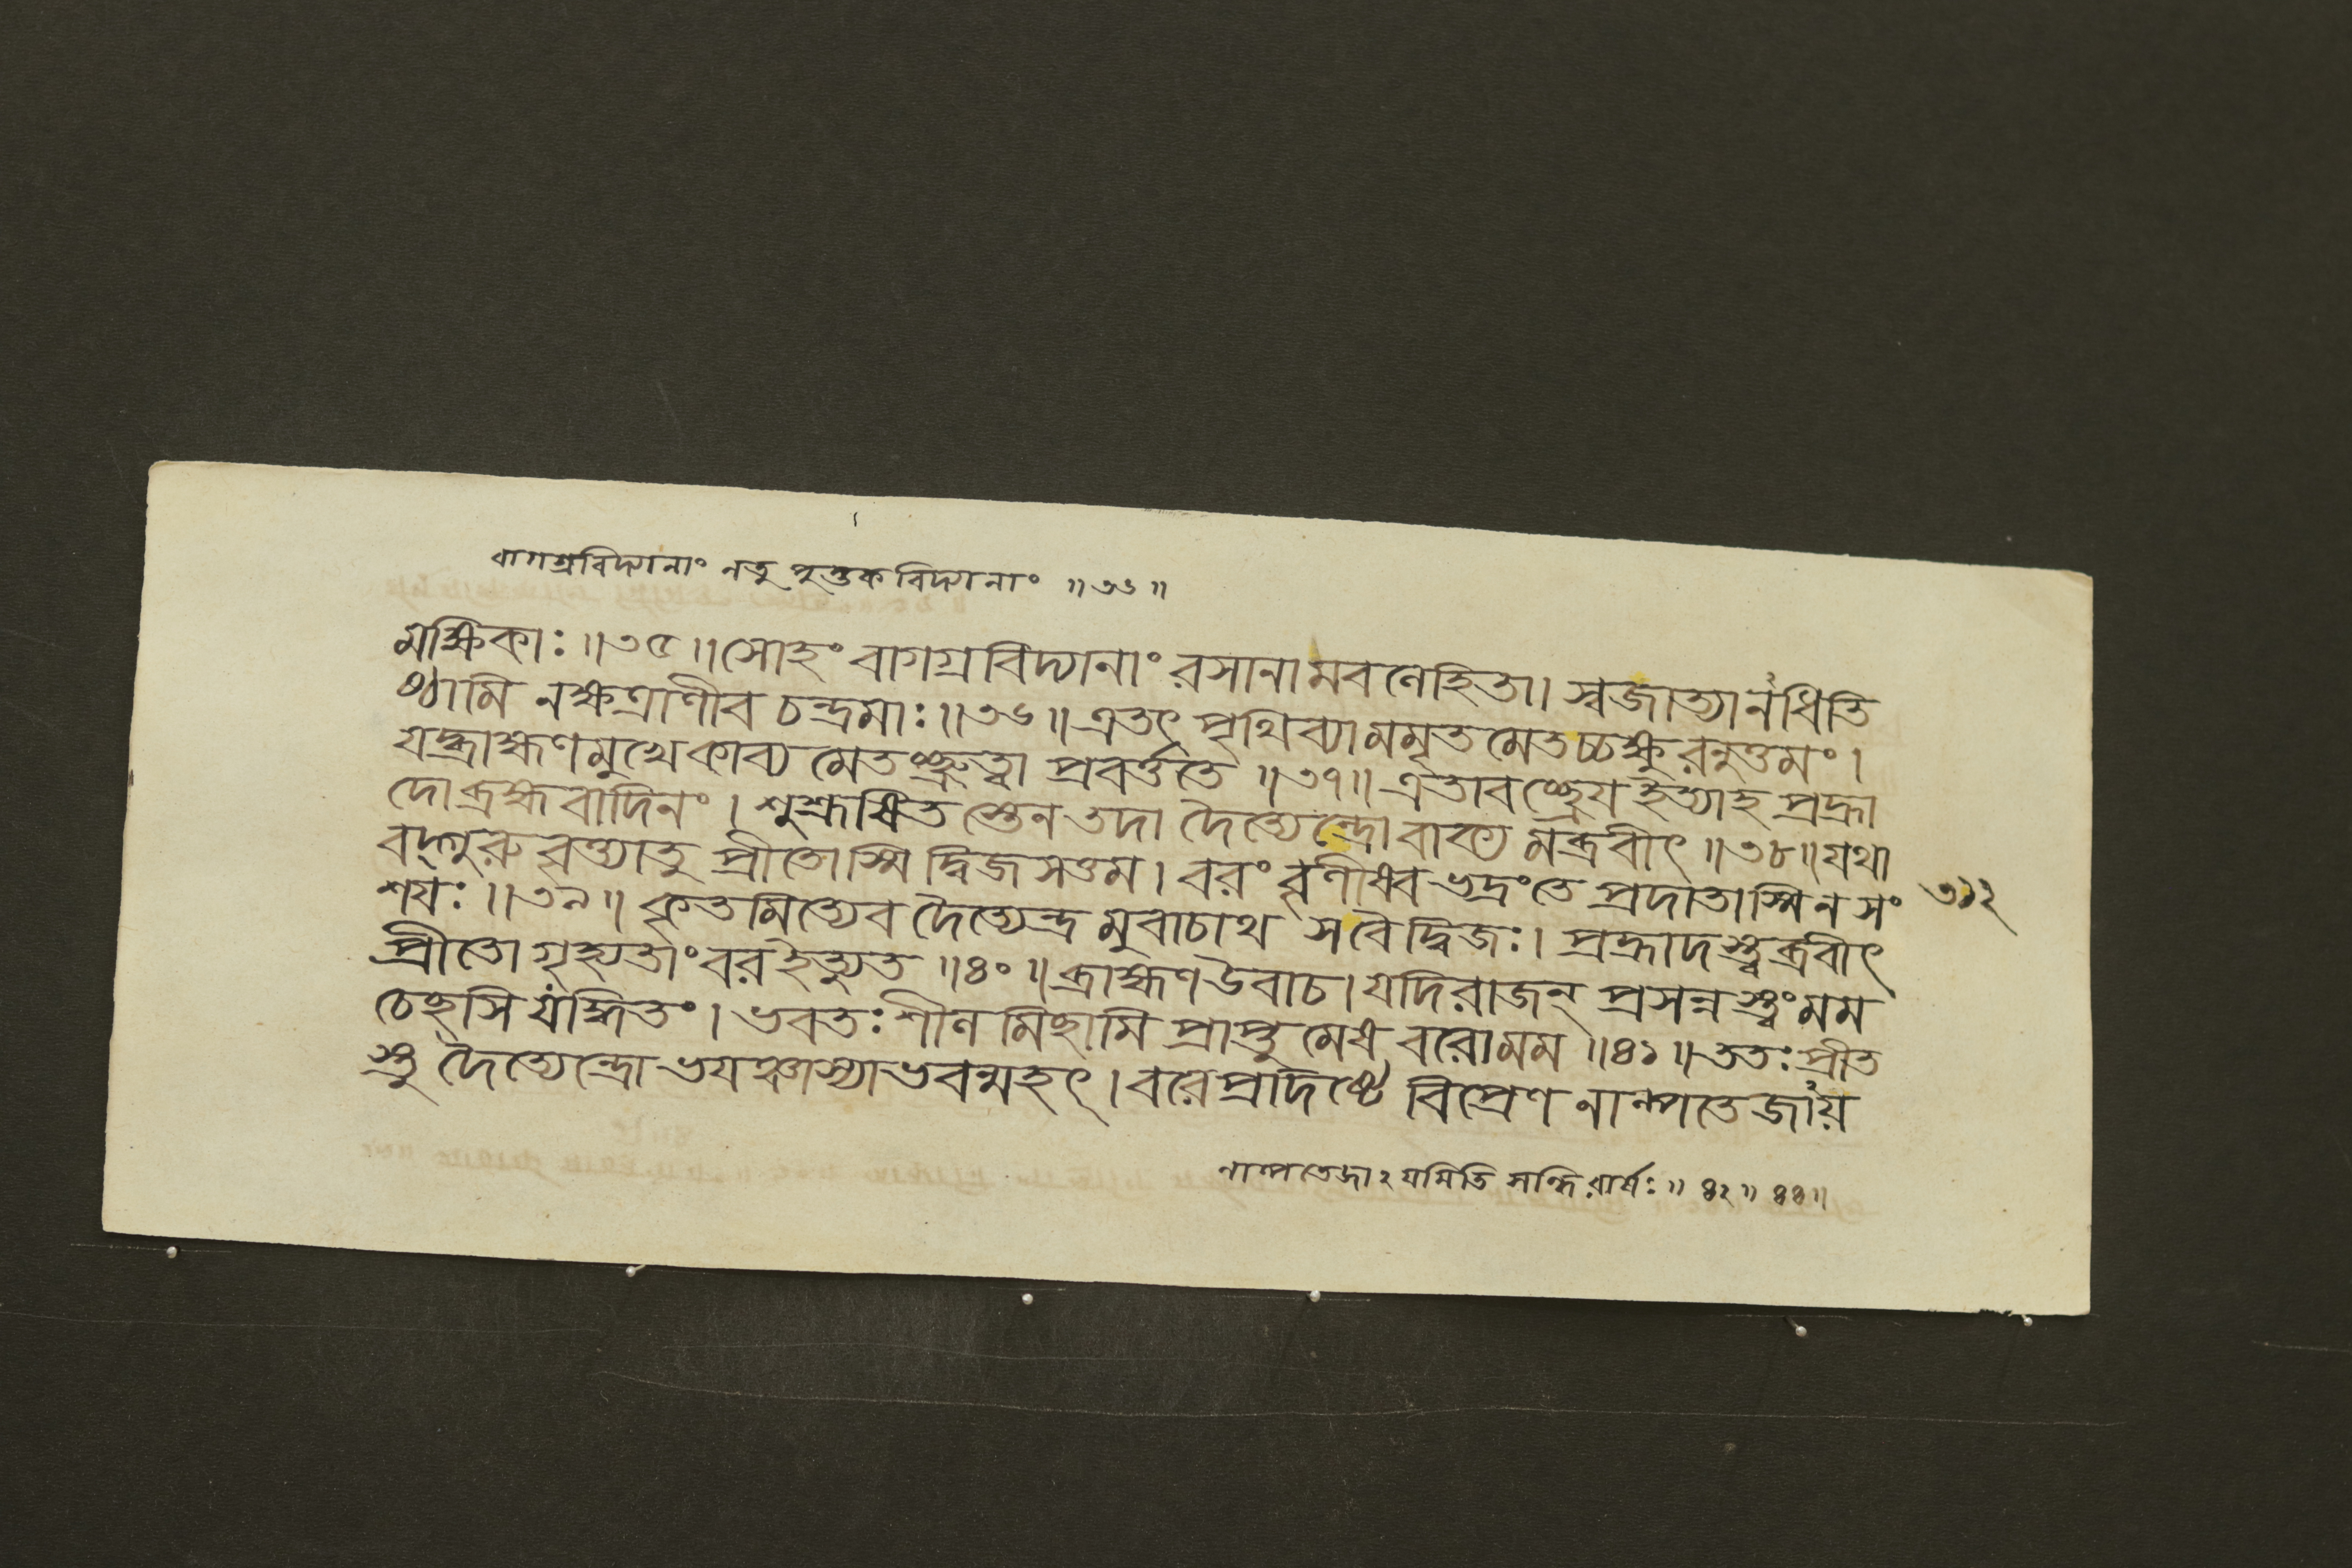 বাগগ্রবিদ্যানাং নতু পুস্তকবিদ্যানাং ॥৩৬॥
মক্ষিকাঃ ॥৩৫॥ সোহং বাগগ্রবিদ্যানাং রসানামবলেহিতা। স্বজাত্যানধিতি
ষ্ঠামি নক্ষত্রাণীব চন্দ্রমাঃ ॥৩৬॥ এতৎ পৃথিব্যামমৃতমেতচ্চক্ষুরনুত্তমং।
যদ্ব্রাহ্মণমুখেকাব্যমেতৎশ্রুত্বা প্রবর্ত্ততে ॥৩৭॥ এতাবৎশ্রেয ইত্যাহ প্রহ্লা
দোব্রহ্মবাদিনং। শুশ্রূষিতস্তেন তদা দৈত্যেন্দ্রোবাক্যমব্রবীৎ ॥৩৮॥ যথা
বদ্গুরুবৃত্ত্যাতু প্রীতোস্মি দ্বিজসত্তম। বরং বৃণীষ্ব ভদ্রংতে প্রদাতাস্মি ন সং
শযঃ ॥৩৯॥ কৃতমিত্যেব দৈত্যেন্দ্রমুবাচাথ সবৈদ্বিজঃ। প্রহ্লাদস্ত্বব্রবীৎ
প্রীতো গৃহ্যতাং বর ইত্যুত ॥৪০॥ ব্রাহ্মণ উবাচ। যদিরাজন্ প্রসন্নস্ত্বং মম
চেছসি যদ্ধিতং। ভবতঃ শীলমিছামি প্রাপ্তুমেষ বরোমম ॥৪১॥ ততঃ প্রীত
স্তু দৈত্যেন্দ্রো ভযঞ্চাস্যাভবন্মহৎ। বরেপ্রদিষ্টে বিপ্রেণ নাল্পতেজায়
৩১২
নাল্পতেজাঽযমিতি সন্ধিরার্ষঃ ॥ ৪২ ॥ ৪৪॥